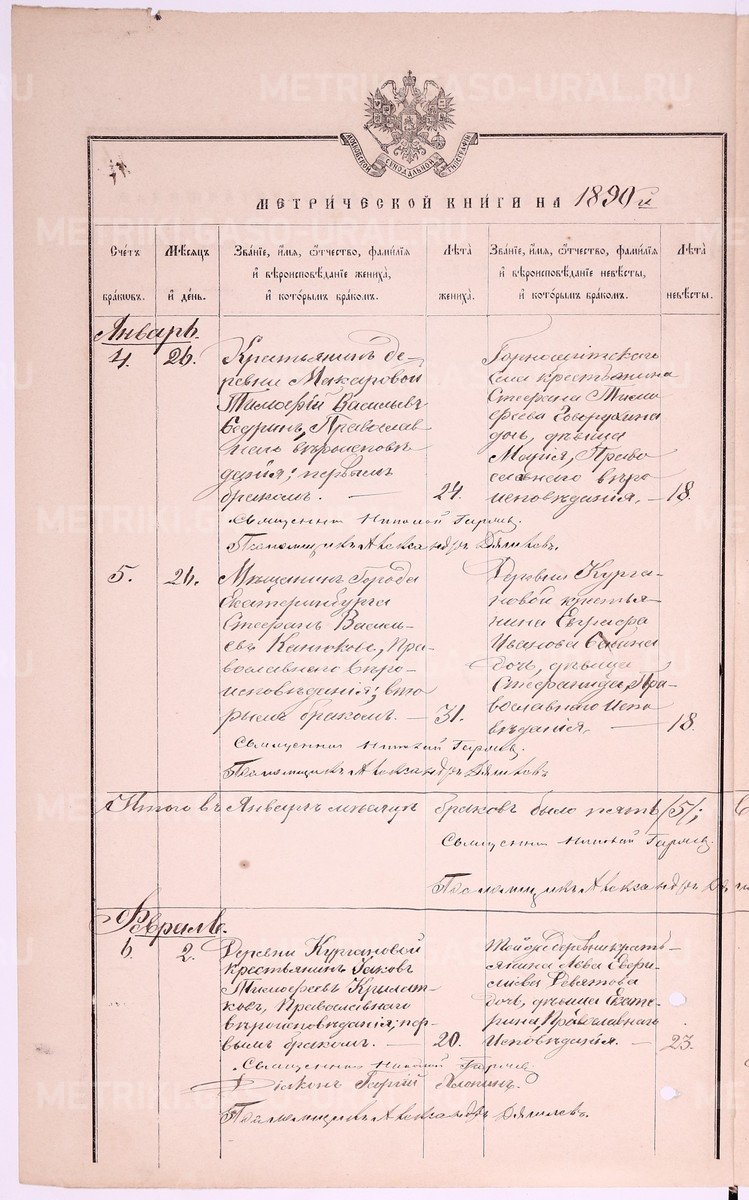 METRIKI.GASO-URAL.RU
МОСКОВСКОЙ СѴНОДАЛЬНОЙ ТИПОГРАФІИ
МЕТРИ́ЧЕСКОЙ КНИ́ГИ НА 1890 й
Сче́тъ бра́ковъ.
Мѣ́сяцъ и҆ де́нь.
Зва́нїе, и҆́мя, ѻ҆́тчество, фами́лїя и҆ вѣроисповѣ́данїе жениха̀, и҆ кото́рымъ бра́комъ.
Лѣ́та жениха̀.
Зва́нїе, и҆́мя, ѻ҆́тчество, фами́лїя и҆ вѣроисповѣ́данїе невѣ́сты, и҆ кото́рымъ бра́комъ.
Лѣ́та невѣ́сты.
Январь.
4.
26.
Крестьянинъ де-
ревни Макаровой
Тимофей Васильевъ
Православ-
наго вѣроисповѣ-
данія; первымъ
бракомъ.
24.
Горнощитскаго
села крестьянина
Стефана Тимо-
феева
дочь, дѣвица
Марія, Право-
славнаго вѣро-
исповѣданія.
18.
Священник Николай
Псаломщикъ Александръ
5.
26.
Мѣщанинъ Города
Екатеринбурга
Стефанъ Василь-
евъ Канюковъ, Пра-
вославнаго вѣро-
исповѣданія; вто-
рымъ бракомъ.
31.
Деревни Курга-
новой крестья-
нина Евграфа
Иванова
дочь, дѣвица
Стефанида, Пра-
вославнаго испо-
вѣданія.
18.
Священник Николай
Псаломщикъ Александръ
Итого въ Январѣ мѣсяцѣ браковъ было пять /5/;
Священник Николай
Псаломщикъ Александръ
Февраль.
6.
2.
Деревни Кургановой
крестьянинъ Іаковъ
Тимофеевъ Крылат-
ковъ, Православнаго
вѣроисповѣданія; пер-
вымъ бракомъ.
20.
Тойже деревни кресть-
янина
Девятова
дочь, дѣвица Екате-
рина Православнаго
Исповѣданія.
23.
Священник Николай
Діаконъ Георгій
Псаломщикъ Александръ